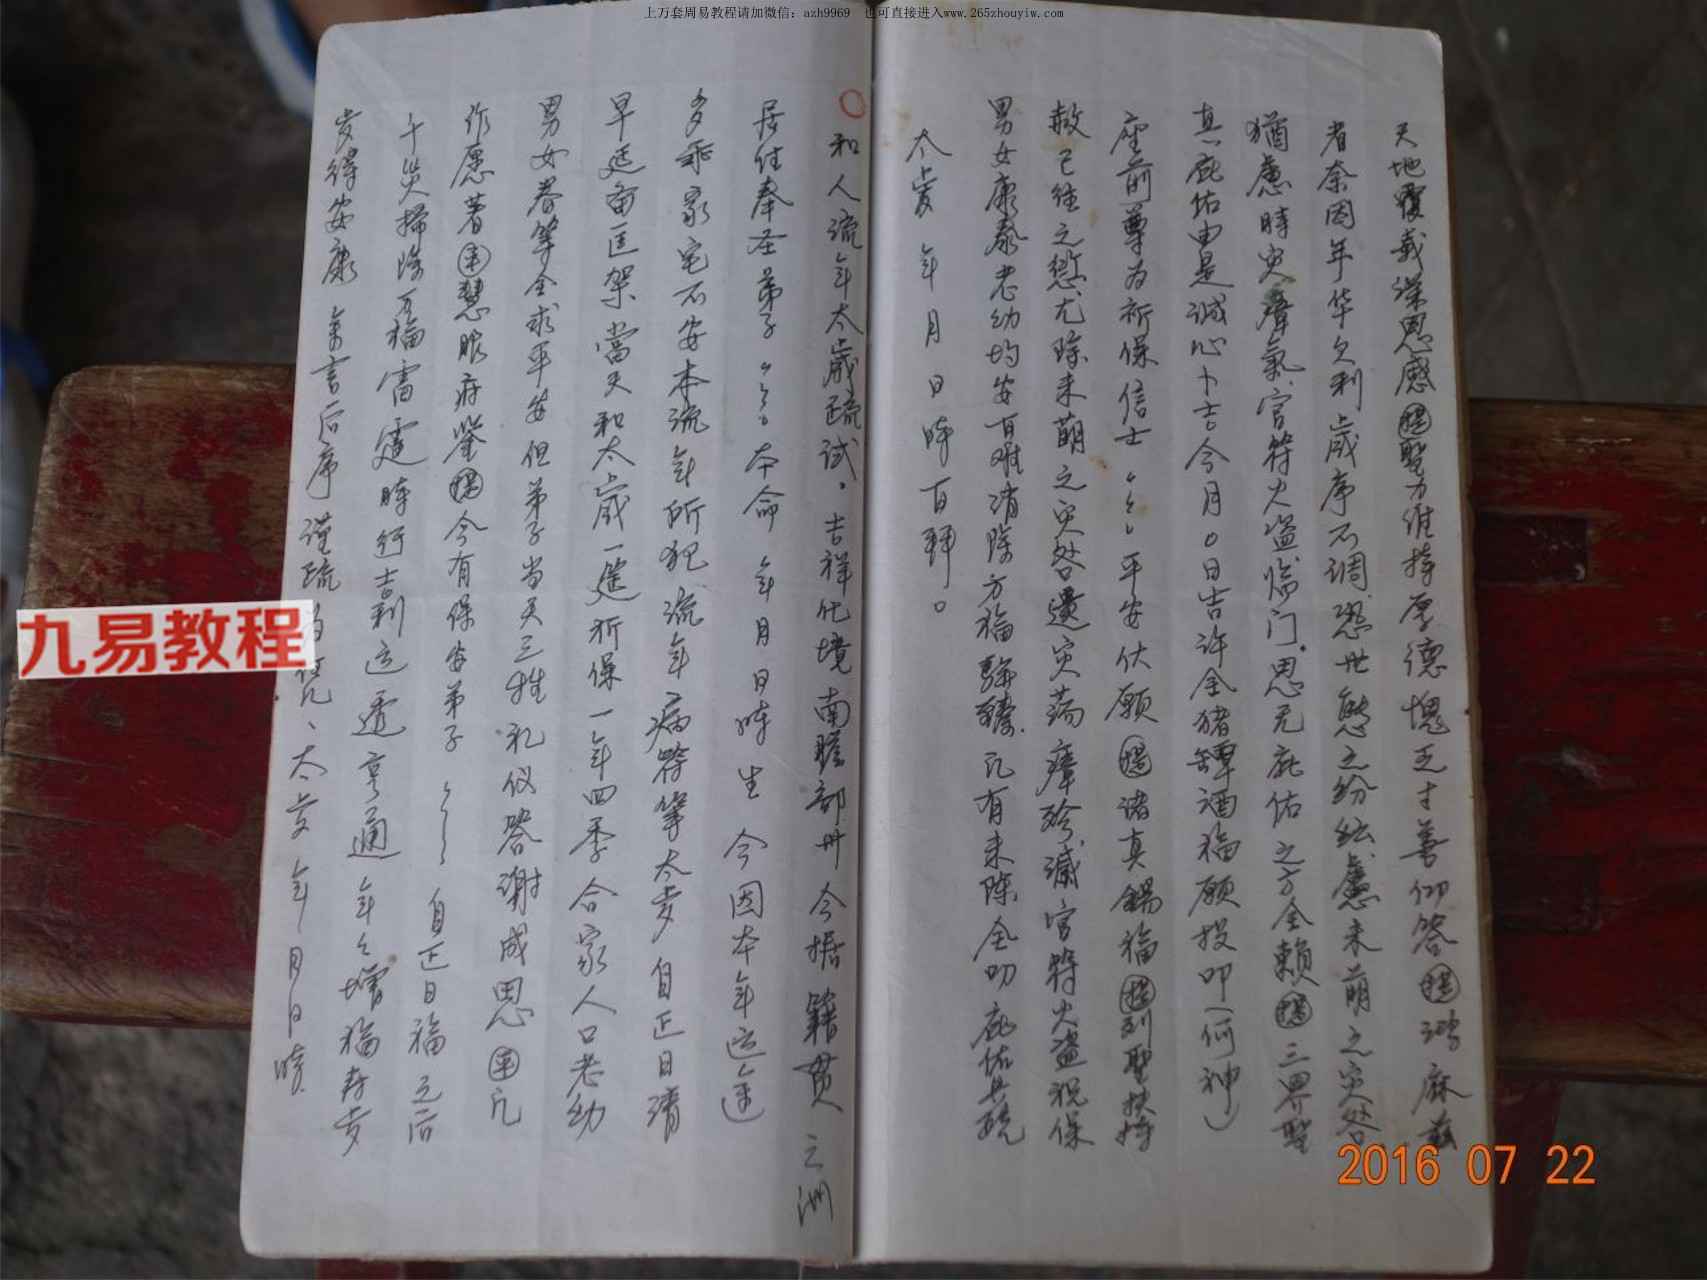 上万套周易教程请加微信：azh9969　也可直接进入www.265zhouyiw.com
天地覆载深恩感㘴聖力维持厚德愧乏寸善仰答㘴鸿庥兹
者奈因年华欠利歳序不调恐世態之纷纭慮未萌之灾咎
猶慮時灾瘴氣官符火盗临门思无庇佑之方全赖三界聖
真庇佑由是诚心卜吉今月〇日吉许金猪罈酒福願投叩（何神）
座前尊为祈保信士〻〻平安伏願诸真錫福列聖扶持
赦已往之愆尤除未萌之灾咎遣灾荡瘴殄滅官符火盗祝保
男女康泰老幼均安百难消除方福骈臻凡有未除全叨庇佑具疏
太歲 年 月 日 時 百拜。
〇和人流年太歳疏试。吉祥化境南瞻部州今据 籍贯 之洲
居住奉圣弟子〻〻本命 年月日時生 今因本年运途
多乖家宅不安本流年所犯流年病符等太岁自正月请
早延当天和太歳一筵祈保一年四季合家人口老幼
男女眷等全求平安但弟子当天三牲礼仪答谢成恩凡
作愿著慧眼府鉴今有保安弟子〻〻 自正日福之后
千灾掃除百福雷霆時行吉利运透亨通年〻增福寿岁
岁得安康 具書后序謹疏 太岁 年 月 日 時
九易教程
2016 07 22